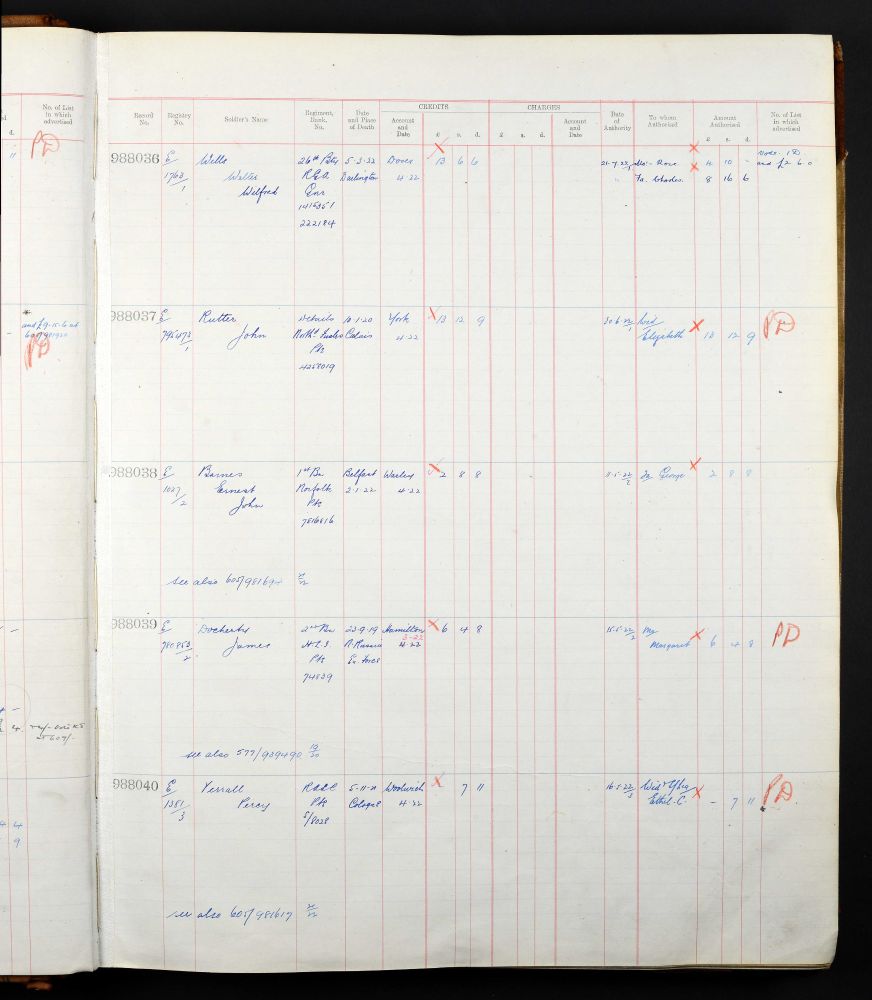 No. of List
in which
advertised
d.
11
PD
and £9-15-6 at
PD
CREDITS
CHARGES
Record
No.
Registry
No.
Soldier's Name
Regiment,
Rank,
No.
Date
and Place
of Death
Account
and
Date
£ s. d.
£ s. d.
Account
and
Date
Date
of
Authority
To whom
Authorised
Amount
Authorised
£ s. d.
No. of List
in which
advertised
988036 E/ Wells 26th Baty 5-3-22 Dover 13 6 6 21-7-22/1 Mo:- Rose 4 10 -
1763/1 Wells R.G.A. Darlington 4-22 " Fa. Charles. 8 16 6
Wilfred Gnr
1415351
222184
and £2 6 0
988037 E/ Rutter Details 10-1-20 York 13 12 9 30-6-22/1 Wid
795473/1 John North'd Fuslrs Calais 4-22 Elizabeth 13 12 9 PD
Pte
4258019
988038 E/ Barnes 1st Bn Belfast Warley 2 8 8 11-5-22/2 Fa George 2 8 8
1027/2 Ernest Norfolk 2-1-22 4-22
John Pte
7816816
see also 605/981694
988039 E/ Docherty 2nd Bn 23-9-19 Hamilton 6 4 8 15-5-22/2 Mo
780853/2 James H.L.I. N. Russia 3-22 Margaret 6 4 8 PD
Pte Ex. Force 4-22
74839
see also 577/939490 19/20
988040 E/ Verrall R.A.S.C 5-11-21 Woolwich 7 11 16-5-22/3 Wid
1381/3 Percy Pte Cologne 4-22 Ethel. C. - 7 11 PD
S/8028
see also 605/981617